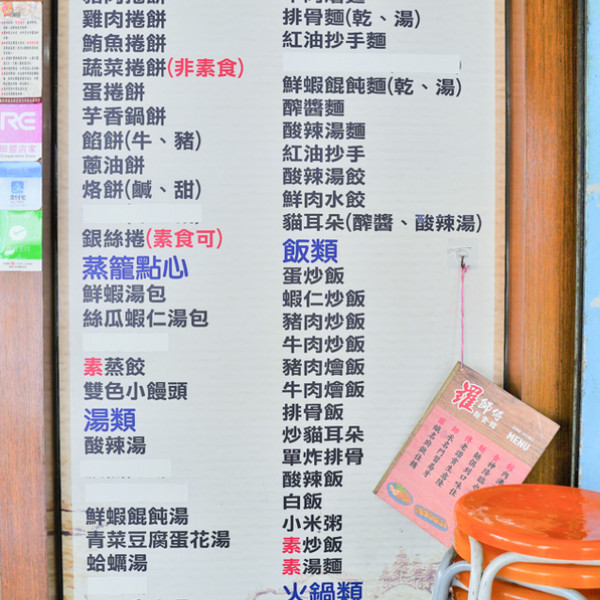 雞肉捲餅
鮪魚捲餅
蔬菜捲餅(非素食)
蛋捲餅
芋香鍋餅
餡餅(牛、豬)
蔥油餅
烙餅(鹹、甜)
銀絲捲(素食可)
蒸籠點心
鮮蝦湯包
絲瓜蝦仁湯包
素蒸餃
雙色小饅頭
湯類
酸辣湯
鮮蝦餛飩湯
青菜豆腐蛋花湯
蛤蠣湯
排骨麵(乾、湯)
紅油抄手麵
鮮蝦餛飩麵(乾、湯)
醡醬麵
酸辣湯麵
紅油抄手
酸辣湯餃
鮮肉水餃
貓耳朵(醡醬、酸辣湯)
飯類
蛋炒飯
蝦仁炒飯
豬肉炒飯
牛肉炒飯
豬肉燴飯
牛肉燴飯
排骨飯
炒貓耳朵
單炸排骨
酸辣飯
白飯
小米粥
素炒飯
素湯麵
火鍋類
羅師傅
MENU
RE